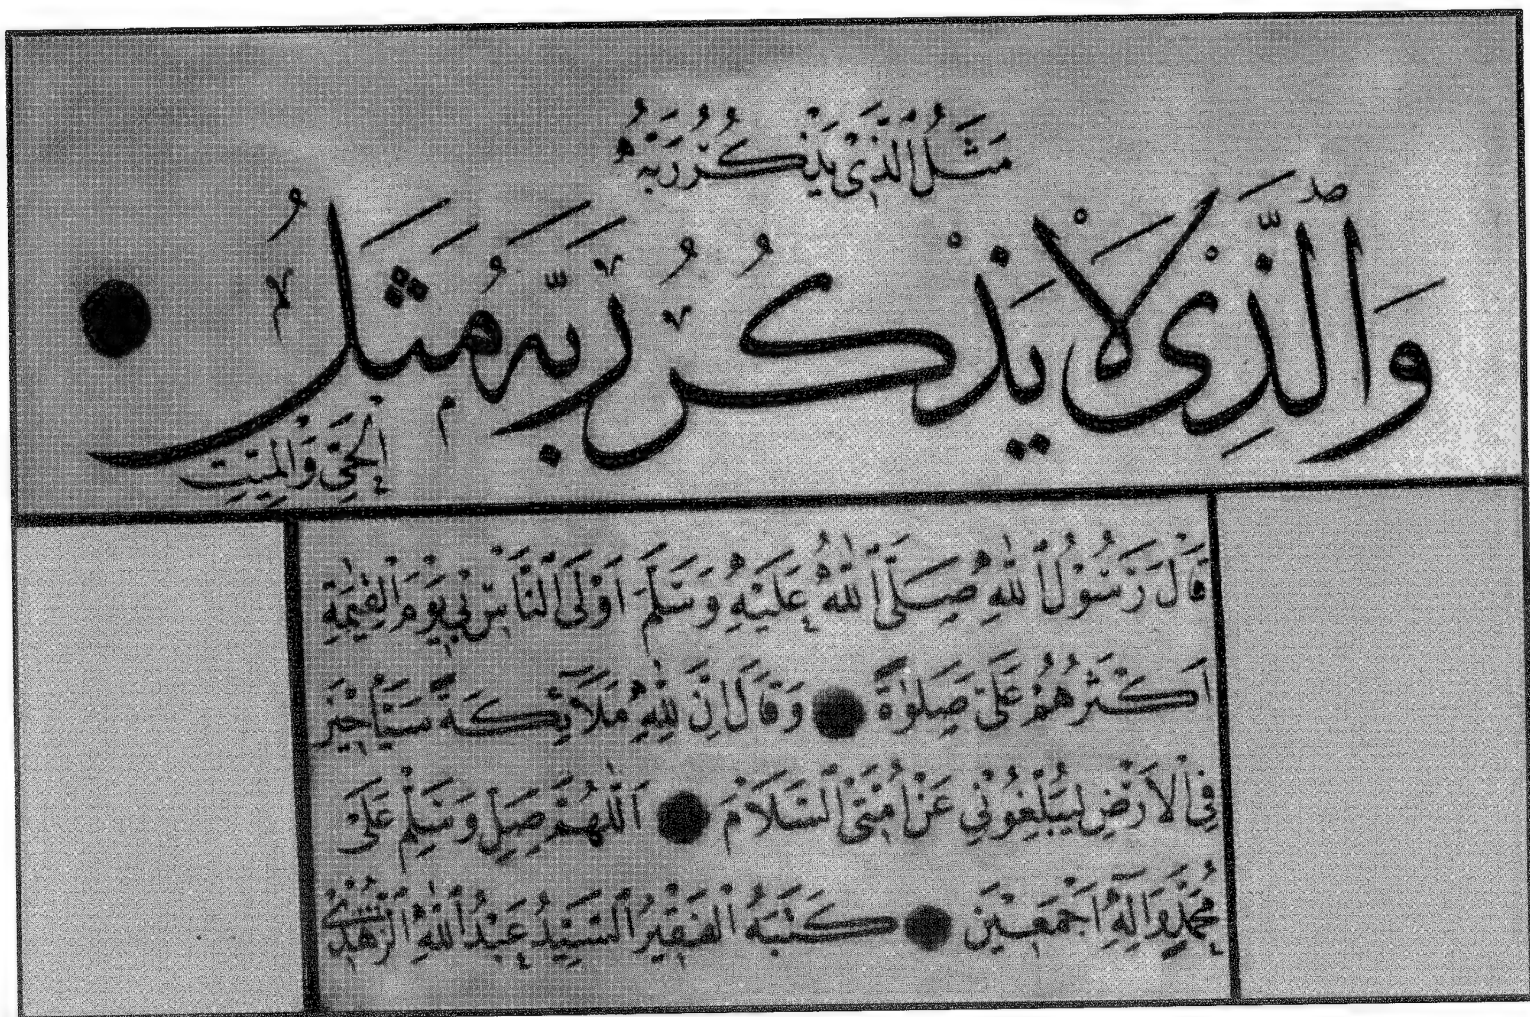 مَثَلُ الَّذِي يَذْكُرُ رَبَّهُ
وَالَّذِي لَا يَذْكُرُ رَبَّهُ مَثَلُ
الْحَيِّ وَالْمَيِّتِ
قَالَ رَسُولُ اللهِ صَلَّى اللهُ عَلَيْهِ وَسَلَّمَ اَوْلَى النَّاسِ بِي يَوْمَ الْقِيٰمَةِ
اَكْثَرُهُمْ عَلَيَّ صَلٰوةً وَقَالَ اِنَّ لِلّٰهِ مَلَآئِكَةً سَيَّاحِينَ
فِي الْاَرْضِ يُبَلِّغُونِي عَنْ اُمَّتِي السَّلَامَ اَللّٰهُمَّ صَلِّ وَسَلِّمْ عَلَى
مُحَمَّدٍ وَاٰلِهِ اَجْمَعِينَ كَتَبَهُ الْفَقِيرُ السَّيِّدُ عَبْدُ اللهِ الزُّهْدِي